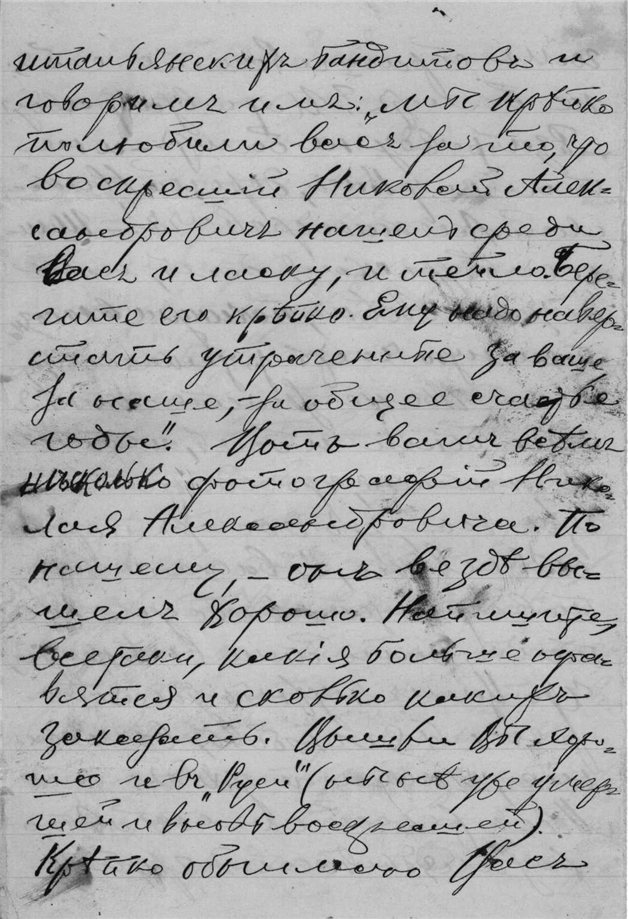 итальянскихъ бандитовъ и
говоримъ имъ: „Мы крѣпко
полюбили васъ за то, что
воскресшій Николай Алек-
сандровичъ нашелъ среди
Васъ и ласку, и тепло. Бере-
гите его крѣпко. Ему надо навер-
стать утраченные за ваше,
за наше, – за общее счастье
годы“. Шлю вамъ всѣмъ
нѣсколько фотографій Нико-
лая Александровича. По
нашему, – онъ вездѣ вы-
шелъ хорошо. Напишите,
всетаки, какія больше нра-
вятся и сколько какихъ
заказать. Вышли Вы хоро-
шо и въ „Руси“ (нынѣ уже умер-
шей и вновь воскресшей).
Крѣпко обнимаю Васъ